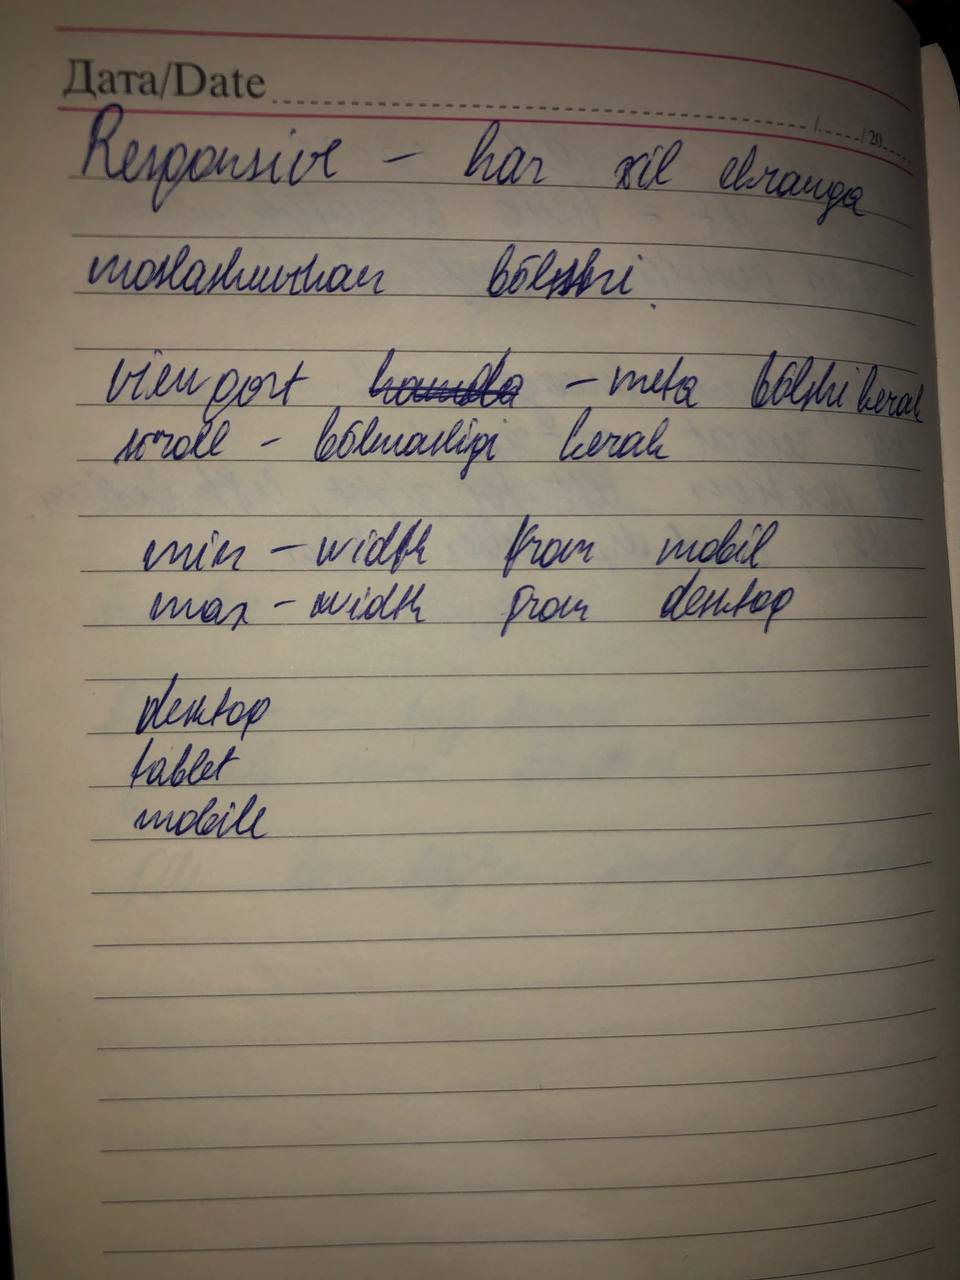 Дата/Date / /20
Responsive – har xil ekranga
moslashuvchan bõlishi.
viewport – meta bõlishi kerak
scroll – bõlmasligi kerak
min – width from mobil
max – width from desktop
desktop
tablet
mobile